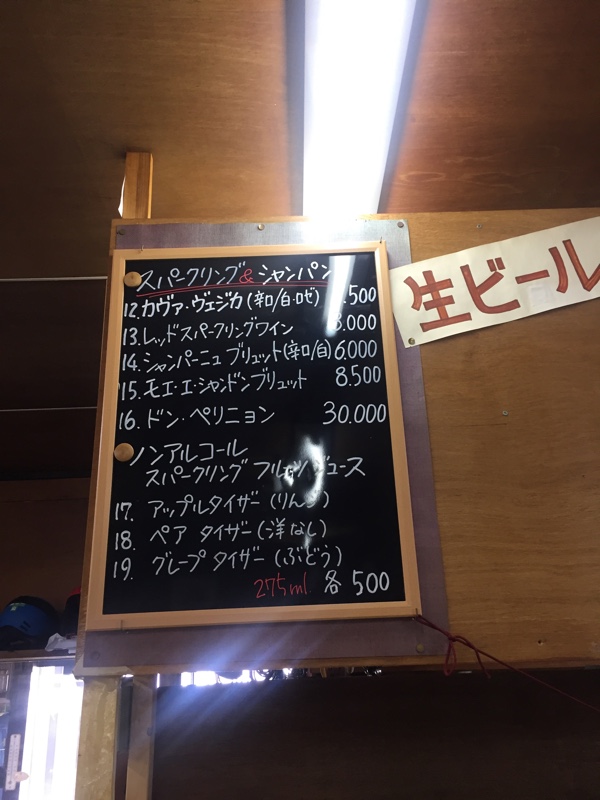 スパークリング & シャンパン
12. カヴァ・ヴェジカ (辛口/白・ロゼ) .500
13. レッドスパークリングワイン .000
14. シャンパーニュ ブリュット (辛口/白) 6.000
15. モエ・エ・シャンドンブリュット 8.500
16. ドン・ペリニョン 30.000
ノンアルコール
スパークリング フルーツジュース
17. アップルタイザー (りんご)
18. ペア タイザー (洋なし)
19. グレープ タイザー (ぶどう)
275ml 各 500
生ビール